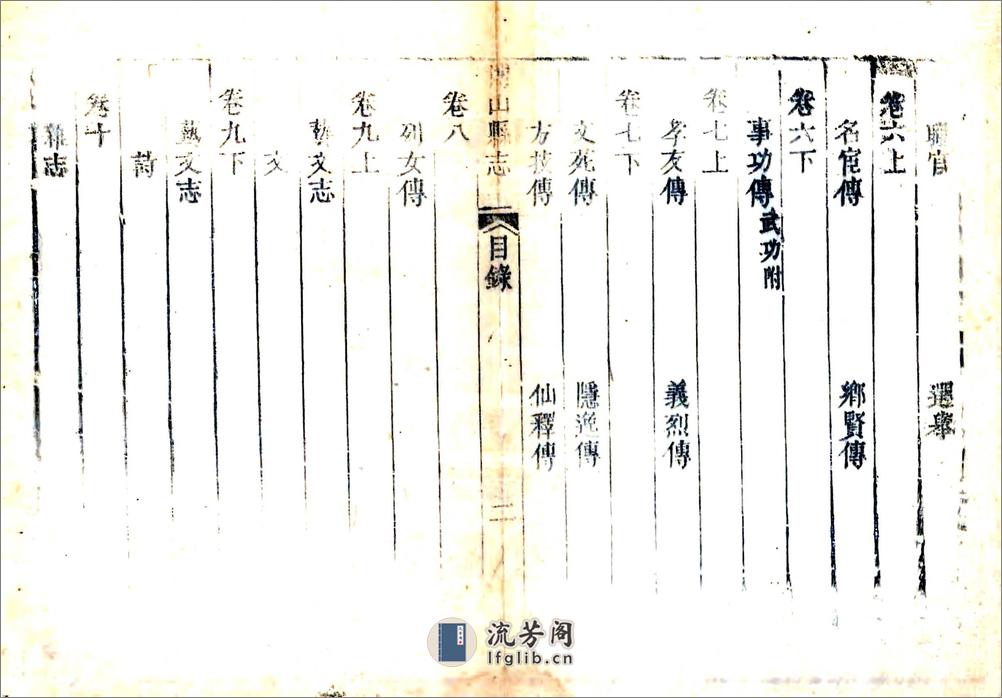 職官 選舉
卷六上
名宦傳 鄉賢傳
卷六下
事功傳 武功附
卷七上
孝友傳 義烈傳
卷七下
文苑傳 隱逸傳
方技傳 仙釋傳
山縣志 目錄 二
卷八
列女傳
卷九上
藝文志
文
卷九下
藝文志
詩
卷十
雜志
流芳阁
lfglib.cn